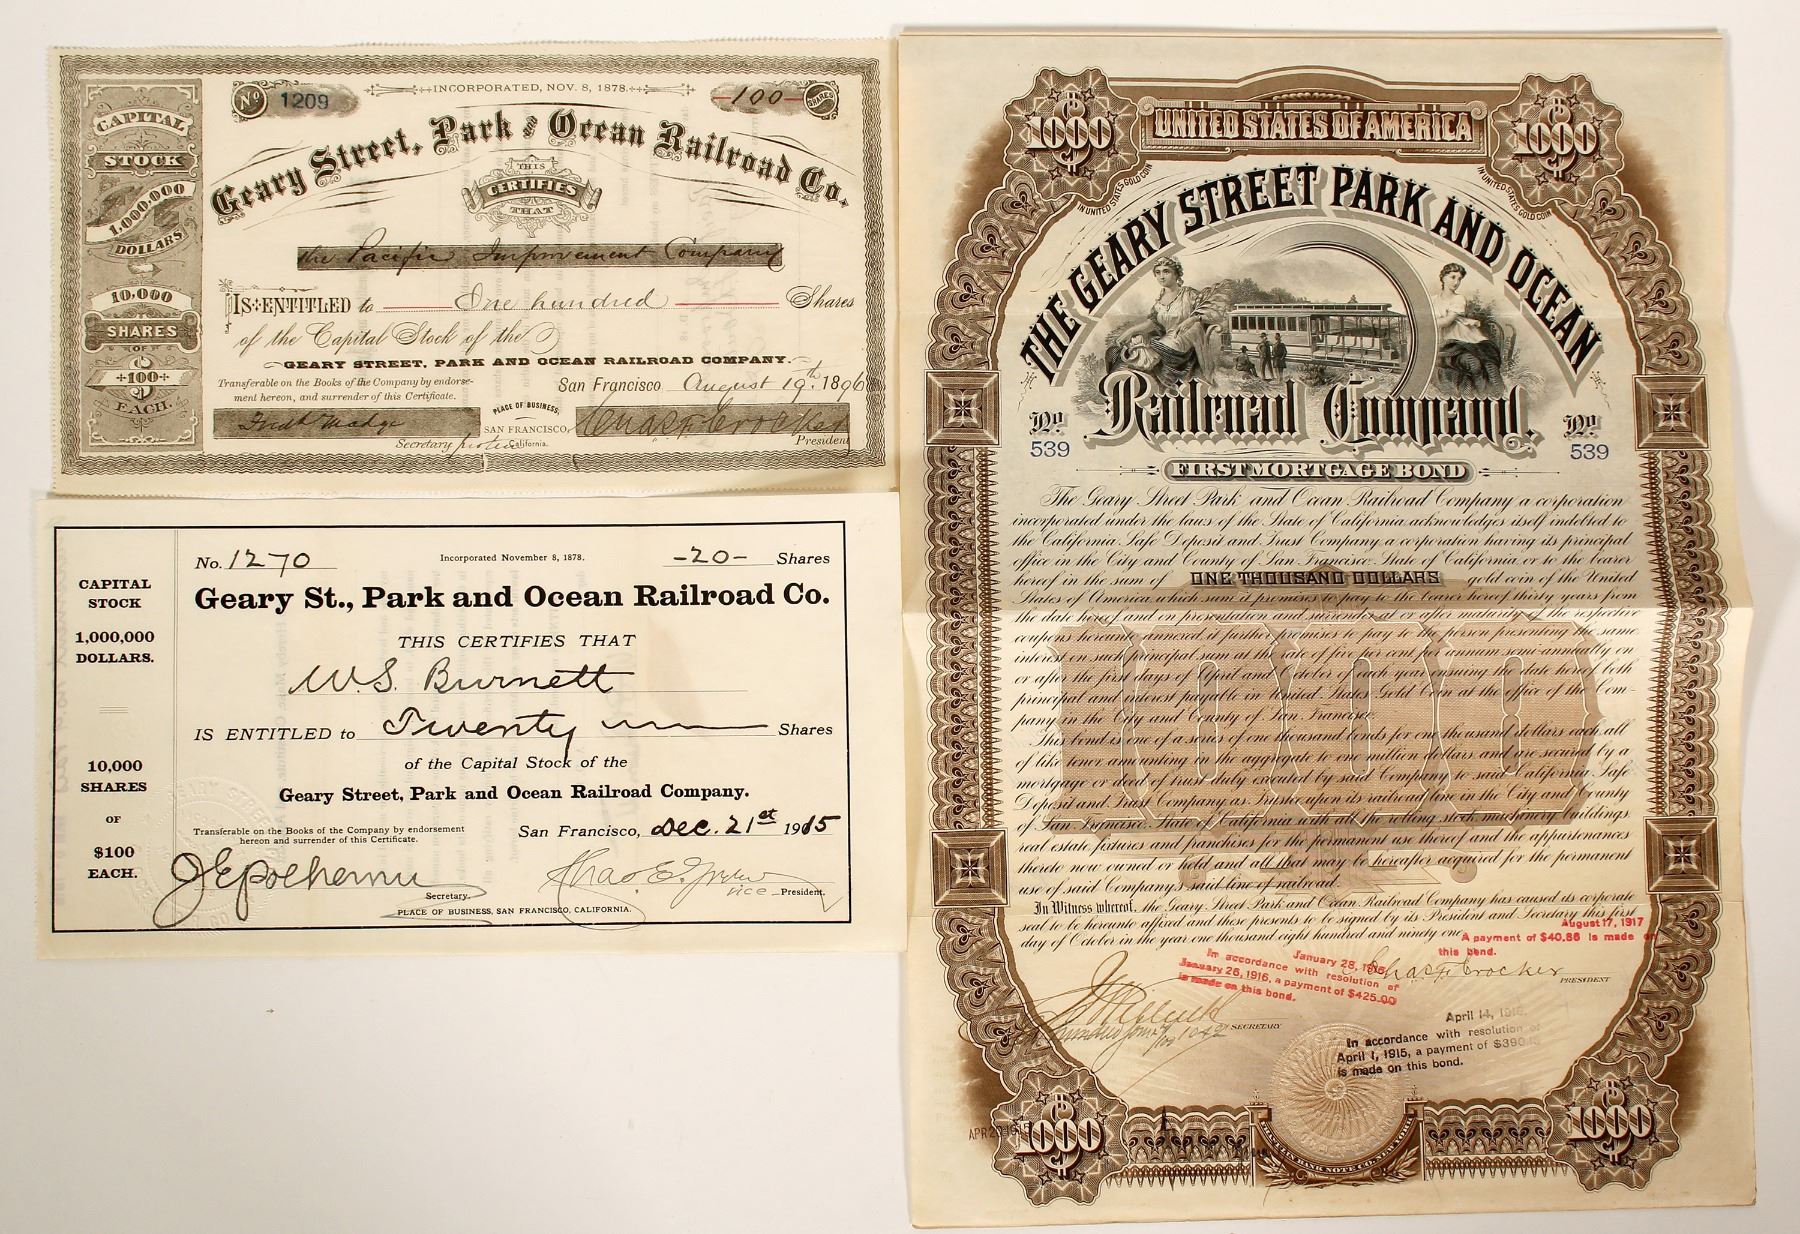 No 1209
INCORPORATED, NOV. 8, 1878.
-100- SHARES
Geary Street, Park and Ocean Railroad Co.
THIS
CERTIFIES
THAT
the Pacific Improvement Company
IS ENTITLED to One hundred Shares
of the Capital Stock of the
GEARY STREET, PARK AND OCEAN RAILROAD COMPANY.
Transferable on the Books of the Company by endorse-
ment hereon, and surrender of this Certificate.
San Francisco August 19th 1896
PLACE OF BUSINESS:
SAN FRANCISCO,
California.
Secretary pro tem
Chas F Crocker
President
CAPITAL
STOCK
1,000,000
DOLLARS
10,000
SHARES
OF
$
100
EACH.
No. 1270
Incorporated November 8, 1878.
-20- Shares
Geary St., Park and Ocean Railroad Co.
THIS CERTIFIES THAT
W.S. Burnett
IS ENTITLED to Twenty Shares
of the Capital Stock of the
Geary Street, Park and Ocean Railroad Company.
Transferable on the Books of the Company by endorsement
hereon and surrender of this Certificate.
San Francisco, Dec. 21st 1915
Secretary.
Vice President.
PLACE OF BUSINESS, SAN FRANCISCO, CALIFORNIA.
CAPITAL
STOCK
1,000,000
DOLLARS.
10,000
SHARES
OF
$100
EACH.
$1000
UNITED STATES OF AMERICA
$1000
IN UNITED STATES GOLD COIN
IN UNITED STATES GOLD COIN
THE GEARY STREET PARK AND OCEAN
Railroad Company.
No 539
No 539
FIRST MORTGAGE BOND
The Geary Street Park and Ocean Railroad Company a corporation
incorporated under the laws of the State of California acknowledges itself indebted to
the California Safe Deposit and Trust Company a corporation having its principal
office in the City and County of San Francisco, State of California, or to the bearer
hereof in the sum of ONE THOUSAND DOLLARS gold coin of the United
States of America, which sum it promises to pay to the bearer hereof thirty years from
the date hereof and on presentation and surrender at or after maturity of the respective
coupons hereunto annexed, it further promises to pay to the person presenting the same,
interest on such principal sum at the rate of five per cent. per annum semi-annually on
or after the first days of April and October of each year ensuing the date hereof both
principal and interest payable in United States Gold Coin at the office of the Com-
pany in the City and County of San Francisco.
This bond is one of a series of one thousand bonds for one thousand dollars each, all
of like tenor, amounting in the aggregate to one million dollars and are secured by a
mortgage or deed of trust duly executed by said Company to said California Safe
Deposit and Trust Company as Trustee upon its railroad line in the City and County
of San Francisco, State of California, with all the rolling stock, machinery, buildings,
real estate, fixtures and franchises for the permanent use thereof and the appurtenances
thereto now owned or held and all that may be hereafter acquired for the permanent
use of said Company's said line of railroad.
In Witness whereof, the Geary Street Park and Ocean Railroad Company has caused its corporate
seal to be hereunto affixed and these presents to be signed by its President and Secretary this first
day of October in the year one thousand eight hundred and ninety one.
August 17, 1917
A payment of $40.86 is made on
this bond.
January 28,
In accordance with resolution of
January 26, 1916, a payment of $425.00
is made on this bond.
Chas F. Crocker
PRESIDENT
SECRETARY
April 14,
In accordance with resolution of
April 1, 1915, a payment of $390
is made on this bond.
$1000
$1000